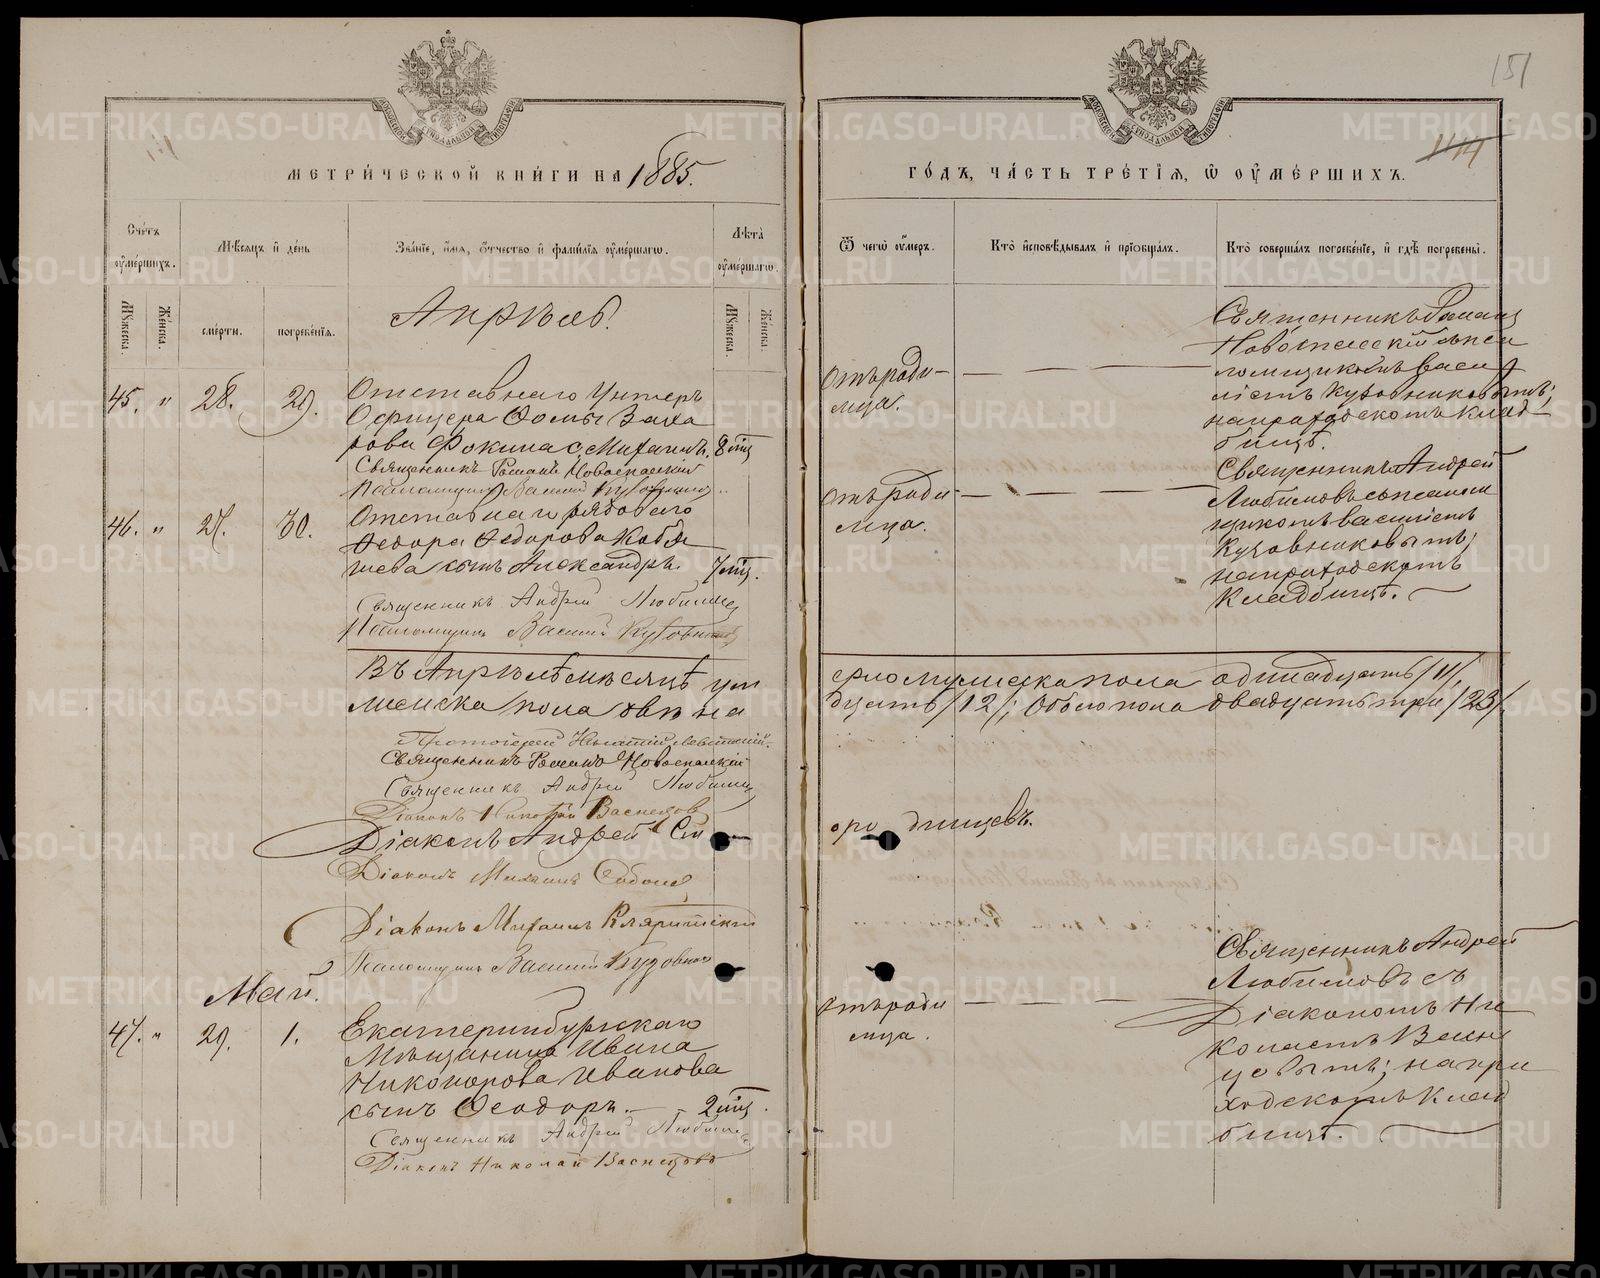 151
114
МЕТРИ́ЧЕСКОЙ КНИ́ГИ НА 1885.
ГО́ДЪ, ЧА́СТЬ ТРЕ́ТІЯ, Ѡ ОУ҆МЕ́РШИХЪ.
Сче́тъ оу҆ме́ршихъ.
Мѣ́сяцъ и҆ де́нь
Зва́нїе, и҆́мя, ѻ҆́тчество и҆ фами́лїя оу҆ме́ршагѡ.
Лѣта̀ оу҆ме́ршагѡ.
Ѿ чегѡ̀ оу҆́меръ.
Кто̀ и҆сповѣ́дывалъ и҆ прїѡбща́лъ.
Кто̀ соверша́лъ погребе́нїе, и҆ гдѣ̀ погребены̀.
Му́жеска.
Же́нска.
сме́рти.
погребе́нїя.
Му́жеска.
Же́нска.
Апрѣль.
45. " 28. 29.
Отставнаго Унтеръ
Офицера Ѳомы Заха
рова Фокина с. Михаилъ. 8 мц
Священникъ Романъ Новоспасскій
Псаломщикъ Василій
Отъ роди-
мца.
Священникъ Романъ
Новоспасскій съ пса
ломщикомъ Васи
ліемъ Кузовниковымъ;
на приходскомъ клад-
бищѣ.
46. " 27. 30.
Отставнаго рядоваго
Ѳедора Ѳедорова Кобя
шева сынъ Александръ. 7 мц.
Священникъ Андрей Любимовъ
Псаломщикъ Василій Кузовниковъ
Отъ роди
мца.
Священникъ Андрей
Любимовъ съ псалом
щикомъ Василіемъ
Кузовниковымъ;
на приходскомъ
кладбищѣ.
Въ Апрѣлѣ мѣсяцѣ уме
рло мужеска пола одинадцать /11/,
женска пола двѣна
дцать /12/; Обоего пола двадцать три /23/.
Протоіерей
Священникъ Романъ Новоспасскій
Священникъ Андрей Любимовъ
Діаконъ Николай Васнецовъ
Діаконъ Андрей
Діаконъ Михаилъ
Діаконъ Михаилъ
Псаломщикъ Василій Кузовниковъ
Май.
47. " 29. 1.
Екатеринбургскаго
Мѣщанина Ивана
Никонорова Иванова
сынъ Ѳеодоръ. 2 мц.
Священникъ Андрей Любимовъ
Діаконъ Николай Васнецовъ
Отъ роди
мца.
Священникъ Андрей
Любимовъ съ
Діакономъ Ни
колаемъ Васне
цовымъ; на при
ходскомъ клад
бищѣ.
METRIKI.GASO-URAL.RU